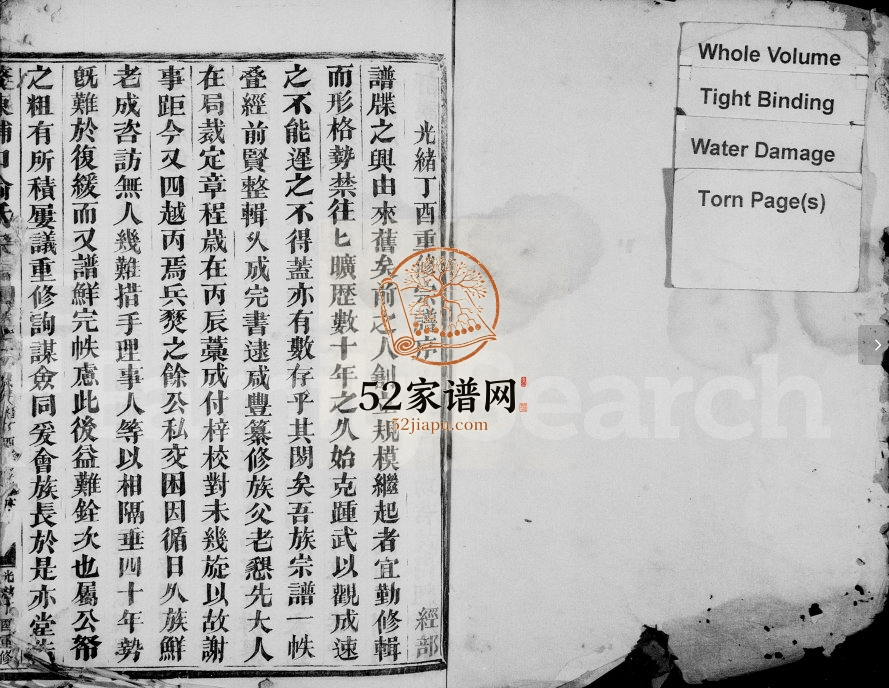 光緒丁酉重修宗譜序
經部
譜牒之興由來舊矣前之人創立規模繼起者宜勤修輯
而形格勢禁往匕曠歷數十年之久始克踵武以觀成速
之不能遲之不得蓋亦有數存乎其閒矣吾族宗譜一帙
叠經前賢整輯久成完書逮咸豐纂修族父老懇先大人
在局裁定章程歲在丙辰藁成付梓校對未幾旋以故謝
事距今又四越丙焉兵燹之餘公私交困因循日久族鮮
老成咨訪無人幾難措手理事人等以相隔垂四十年勢
旣難於復緩而又譜鮮完帙慮此後益難銓次也屬公帑
之粗有所積屢議重修詢謀僉同爰會族長於是亦堂
光緒丁酉重修
Whole Volume
Tight Binding
Water Damage
Torn Page(s)
52家谱网
52jiapu.com
Search